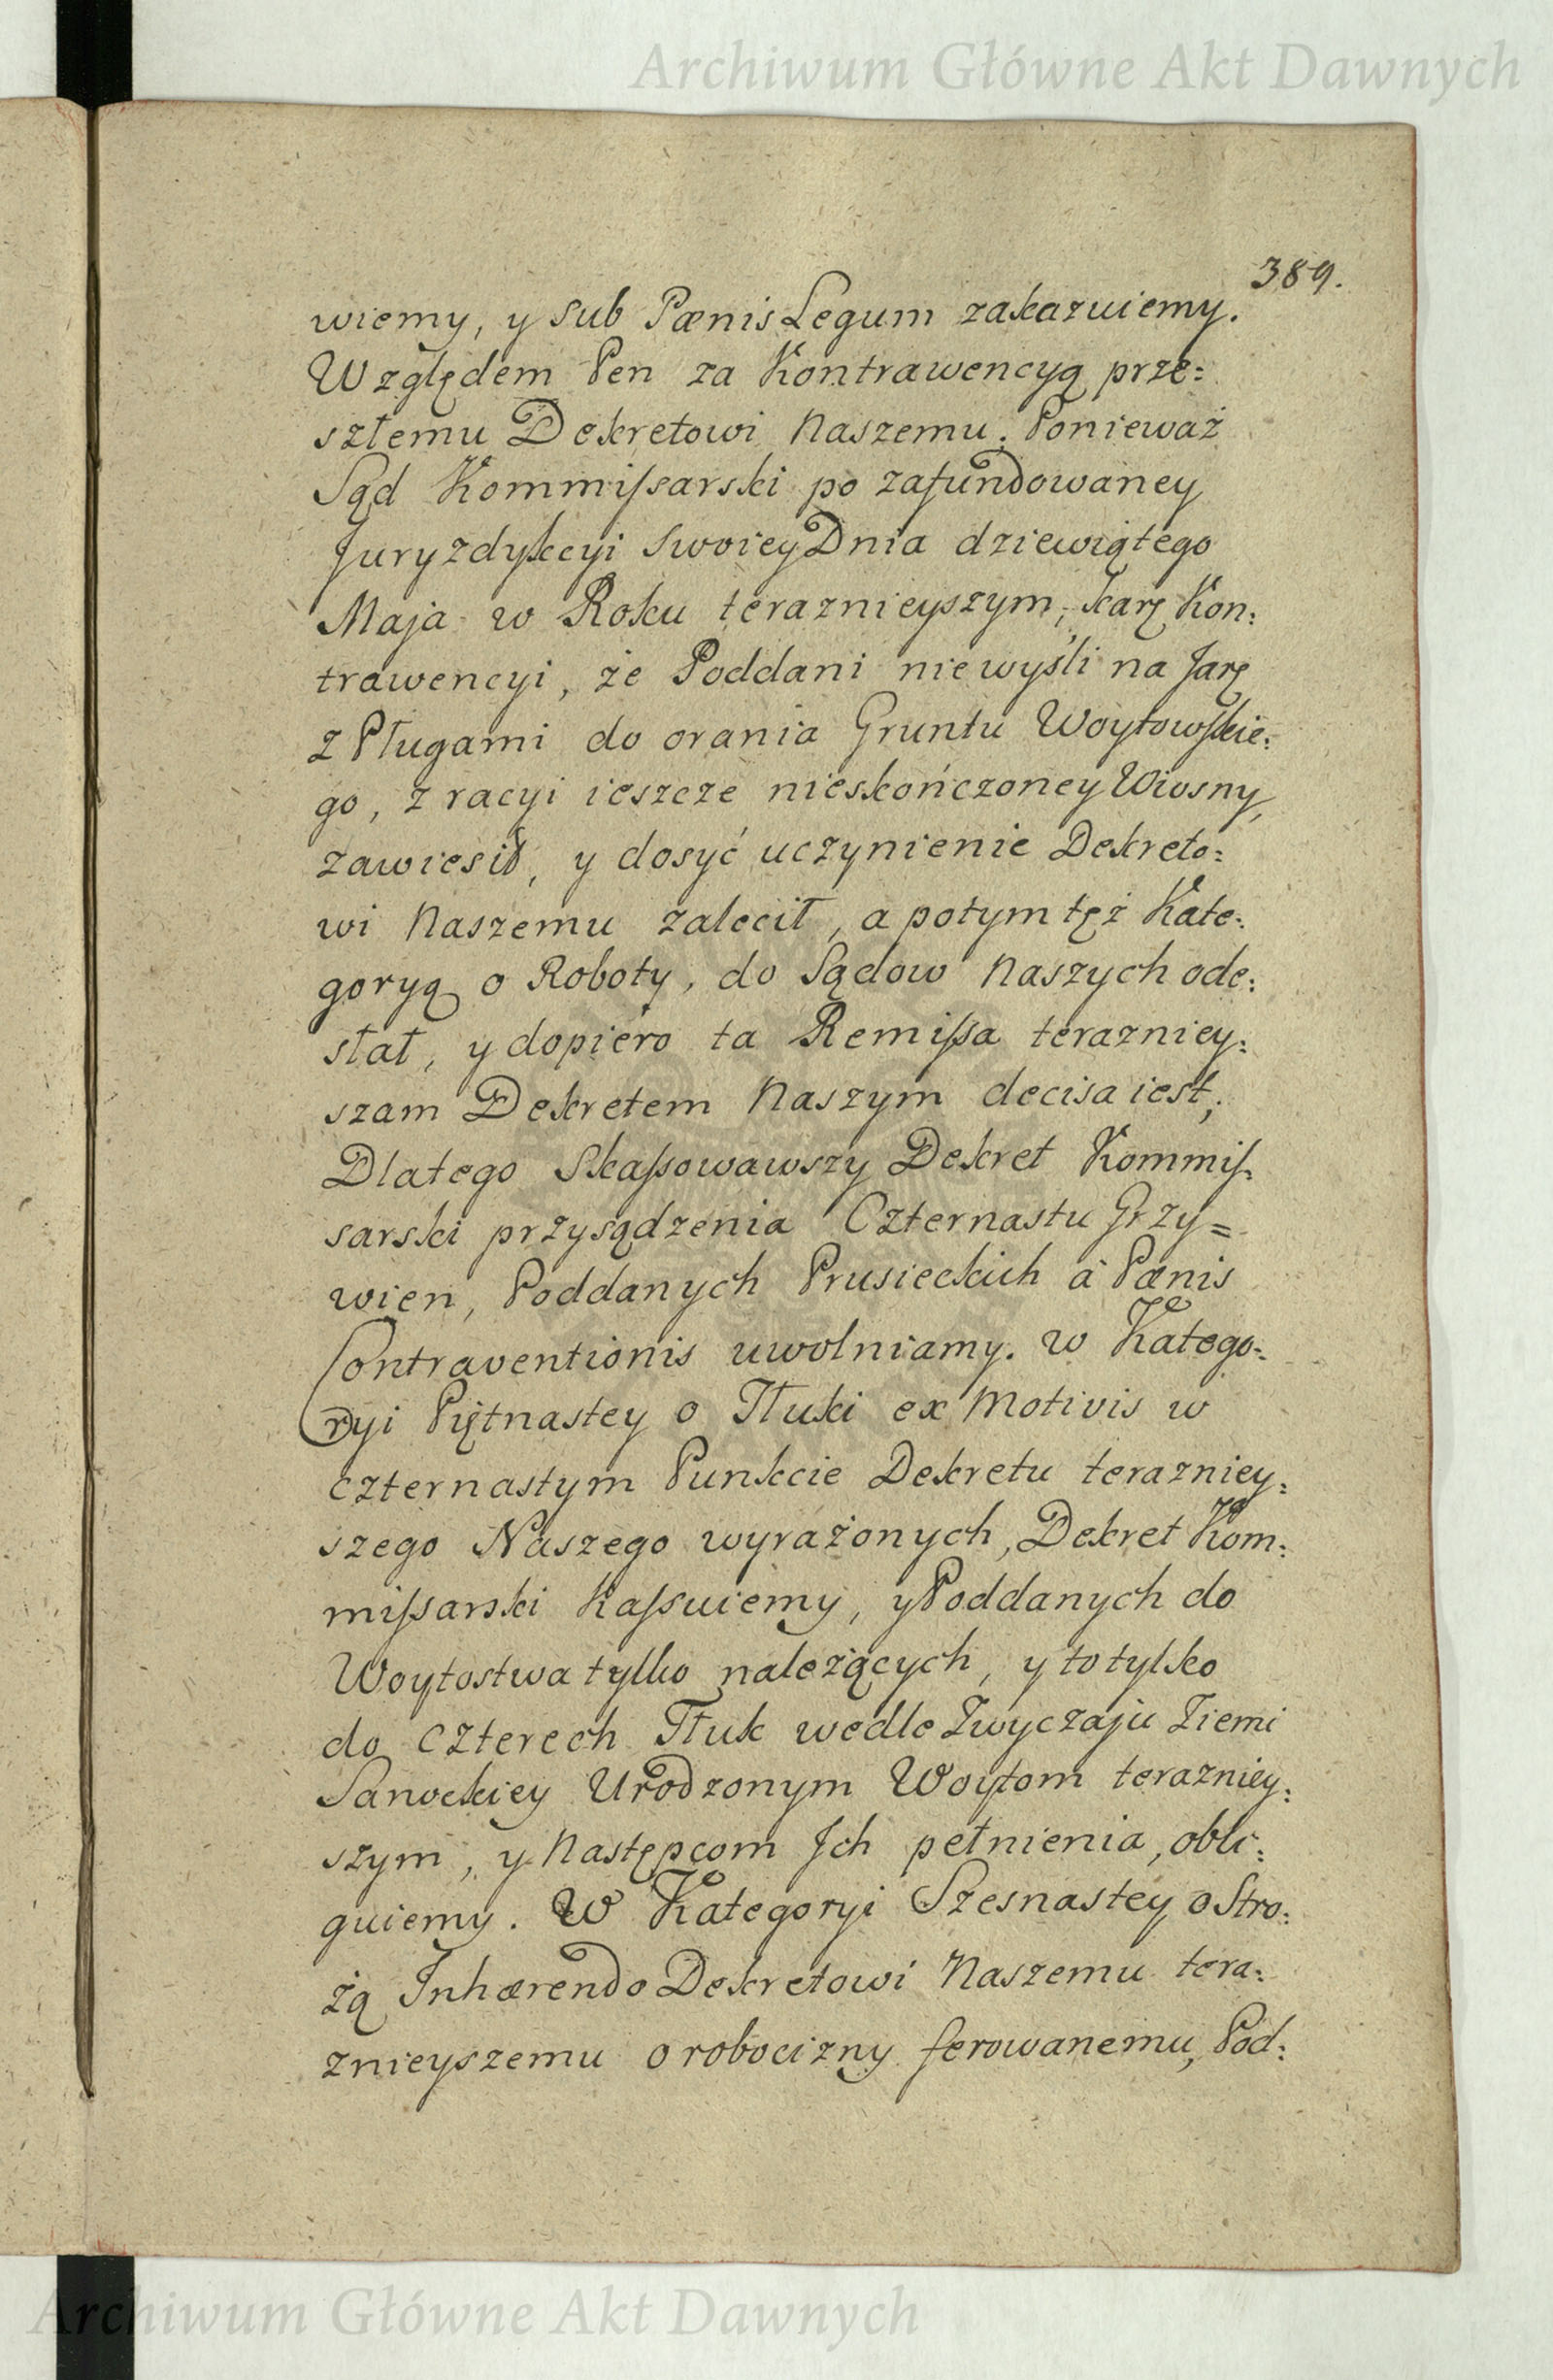 Archiwum Główne Akt Dawnych
389.
wiemy, y sub Pœnis Legum zakazuiemy.
Względem Pen za Kontrawencyą prze:
szłemu Dekretowi Naszemu. Ponieważ
Sąd Kommiſsarski po zafundowaney
Juryzdykcyi swoiey Dnia dziewiątego
Maja w Roku teraznieyszym, karę Kon:
trawencyi, że Poddani niewyśli na Jarę
z Pługami do orania Gruntu Woytowſkie:
go, z racyi ieszcze nieskończoney Wiosny,
zawiesił, y dosyć uczynienie Dekreto:
wi Naszemu zalecił, a potym tęż Kate:
goryą o Roboty, do Sądow Naszych ode:
słał, y dopiero ta Remiſsa terazniey:
szam Dekretem Naszym decisa iest;
Dlatego Skaſsowawszy Dekret Kommiſ:
sarski przysądzenia Czternastu Grzy=
wien, Poddanych Prusieckich à Pœnis
Contraventionis uwolniamy. w Katego:
ryi Piętnastey o Tłuki ex Motivis w
czternastym Punkcie Dekretu terazniey:
szego Naszego wyrażonych, Dekret Kom:
miſsarski Kaſsuiemy, y Poddanych do
Woytostwa tylko należących, y to tylko
do czterech Tłuk wedle Zwyczaju Ziemi
Sanockiey Urodzonym Woytom terazniey:
szym, y Następcom Jch pełnienia, obli:
guiemy. W Kategoryi Szesnastey o Stro:
żą Inhœrendo Dekretowi Naszemu tera:
znieyszemu o robocizny ferowanemu, Pod:
Archiwum Główne Akt Dawnych